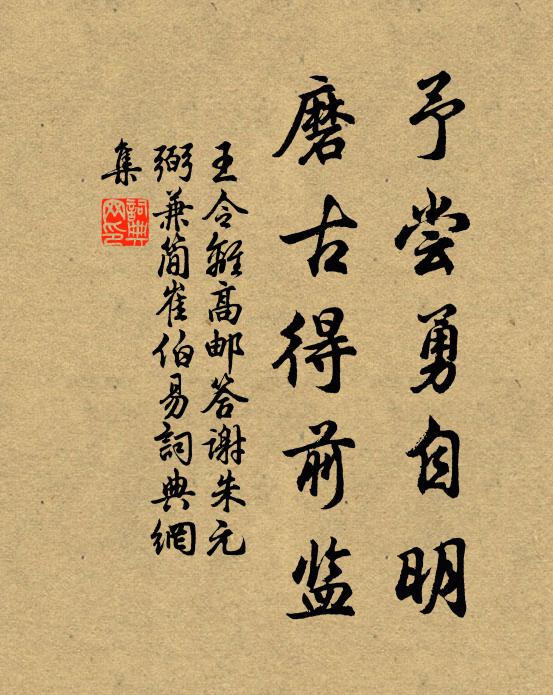 予尝勇自明
磨古得前监
王令離高邮答谢朱元
弼兼简崔伯易詞典網
集
詞典網印